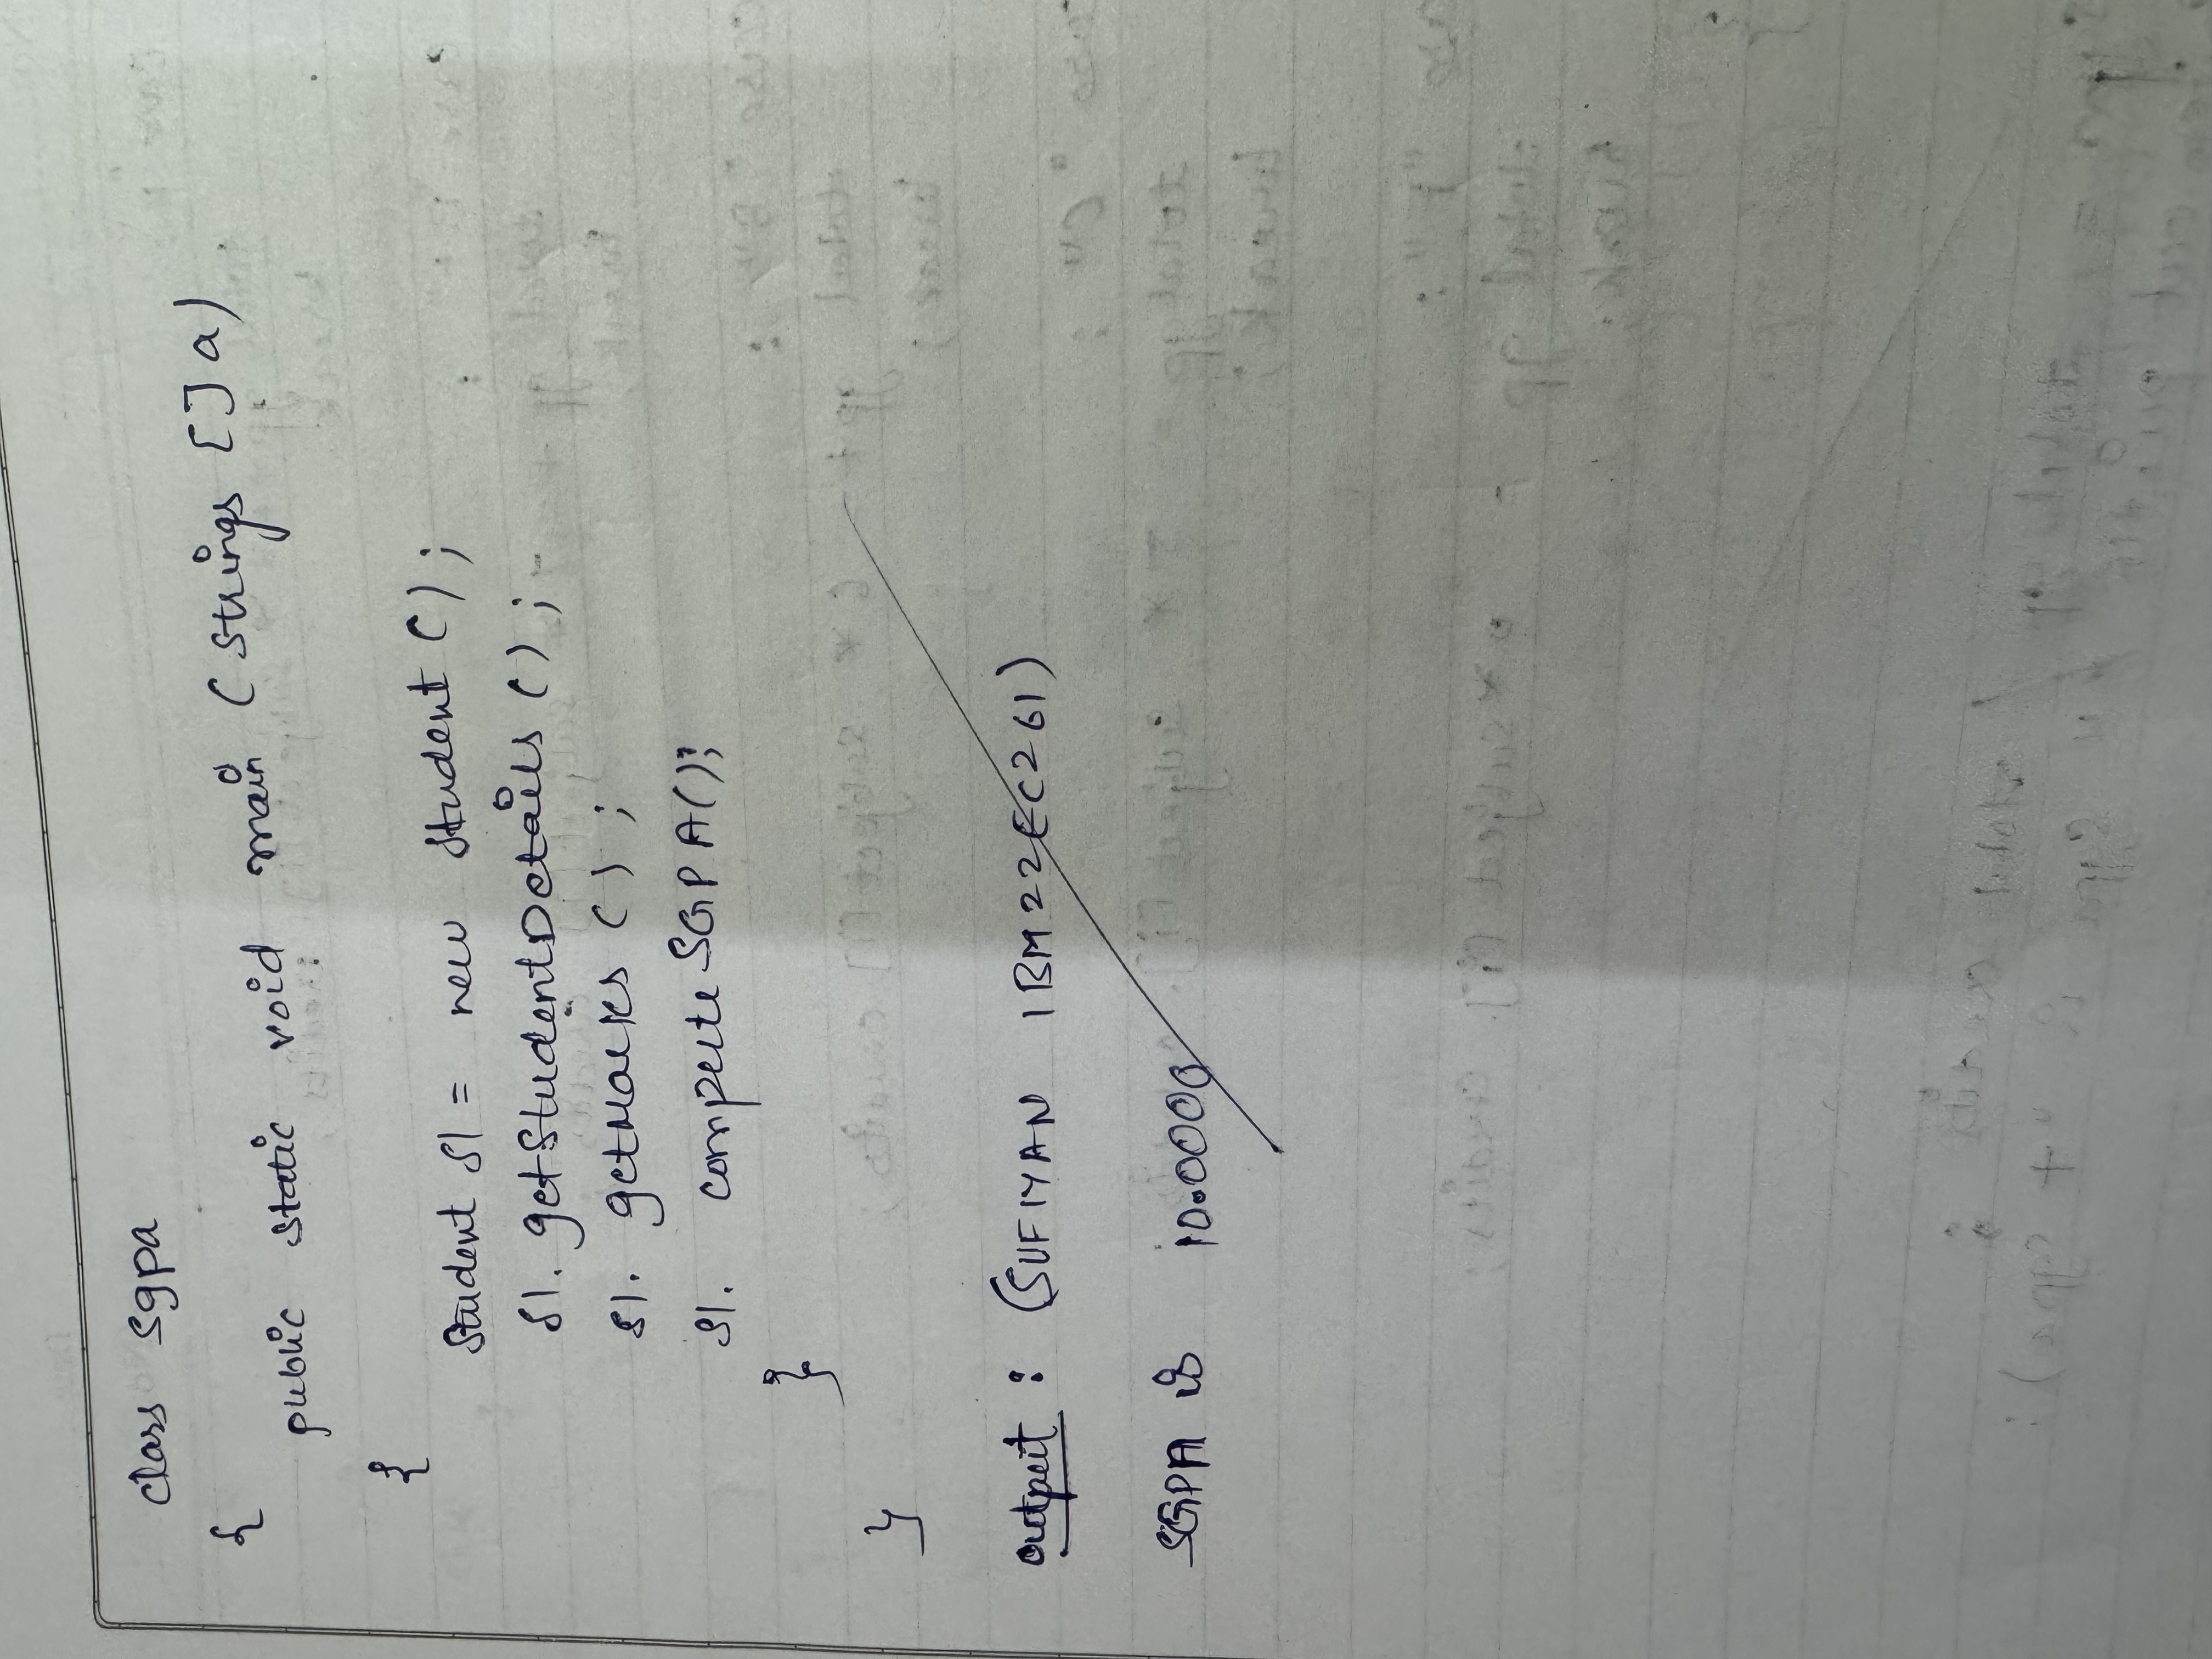 class sgpa
{
public static void main (Strings [] a)
{
Student S1 = new Student ();
S1. getStudentDetails ();
S1. getMarks ();
S1. compute SGPA();
}
}
output : (SUFIYAN 1BM22EC261)
SGPA is 10.0000